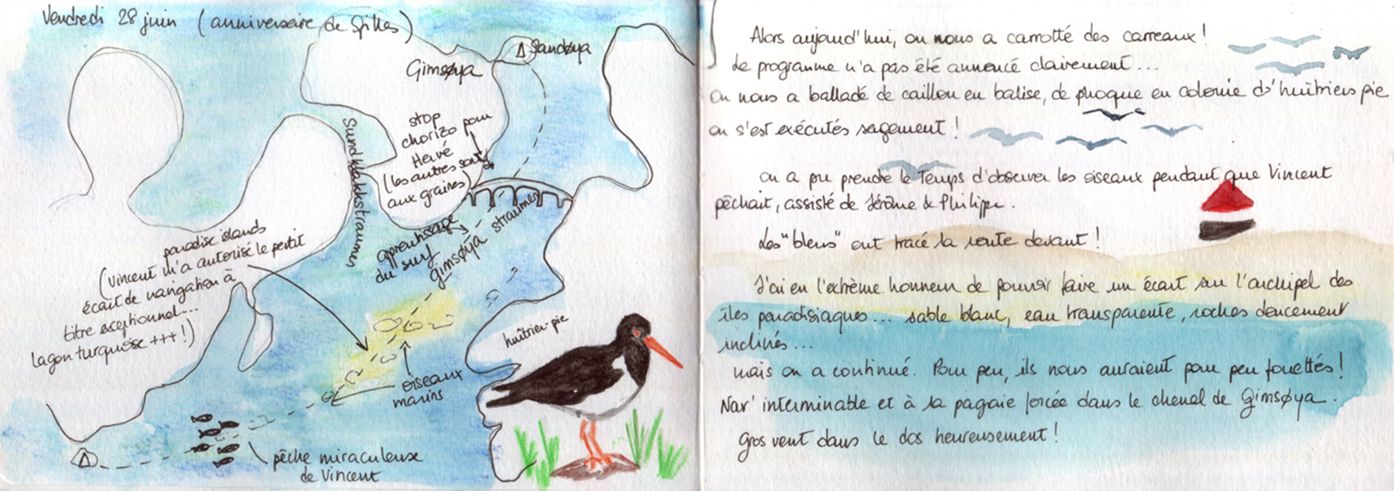 Vendredi 28 juin (anniversaire de Gilles)
Sandøya
Gimsøya
stop
chorizo pour
Hervé
(les autres sont
aux graines)
Sundklakkstraumen
apprentissage
du surf
gimsøya straumen
paradise islands
(Vincent m'a autorisé le petit
écart de navigation à
titre exceptionnel...
lagon turquoise +++ !)
huîtrier pie
oiseaux
marins
pêche miraculeuse
de Vincent
Alors aujourd'hui, on nous a carrotté des carreaux !
Le programme n'a pas été annoncé clairement ...
On nous a balladé de caillou en balise, de phoque en colonie d'huîtriers pie
on s'est exécutés sagement !
On a pu prendre le temps d'observer les oiseaux pendant que Vincent
pêchait, assisté de Jérôme & Philippe.
Les "bleus" ont tracé la route devant !
J'ai eu l'extrême honneur de pouvoir faire un écart sur l'archipel des
îles paradisiaques ... sable blanc, eau transparente, roches doucement
inclinés ...
mais on a continué. Pour peu, ils nous auraient pour peu fouettés !
Nav' interminable et à la pagaie forcée dans le chenal de Gimsøya.
Gros vent dans le dos heureusement !